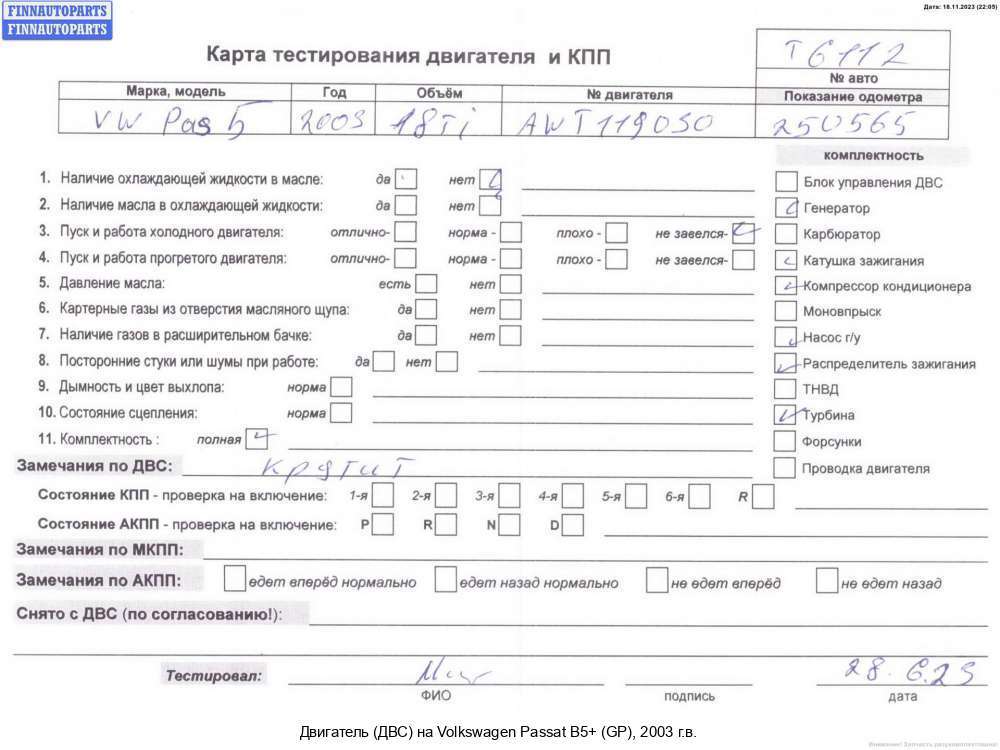 FINNAUTOPARTS
FINNAUTOPARTS
Дата: 18.11.2023 (22:05)
Карта тестирования двигателя и КПП
T6112
№ авто
Марка, модель Год Объём № двигателя Показание одометра
VW Pas 5 2003 18Ti AWT119030 250565
комплектность
1. Наличие охлаждающей жидкости в масле: да нет
Блок управления ДВС
2. Наличие масла в охлаждающей жидкости: да нет
Генератор
3. Пуск и работа холодного двигателя: отлично- норма - плохо - не завелся-
Карбюратор
4. Пуск и работа прогретого двигателя: отлично- норма - плохо - не завелся-
Катушка зажигания
5. Давление масла: есть нет
Компрессор кондиционера
6. Картерные газы из отверстия масляного щупа: да нет
Моновпрыск
7. Наличие газов в расширительном бачке: да нет
Насос г/у
8. Посторонние стуки или шумы при работе: да нет
Распределитель зажигания
9. Дымность и цвет выхлопа: норма
ТНВД
10. Состояние сцепления: норма
Турбина
11. Комплектность : полная
Форсунки
Замечания по ДВС: крутит
Проводка двигателя
Состояние КПП - проверка на включение: 1-я 2-я 3-я 4-я 5-я 6-я R
Состояние АКПП - проверка на включение: P R N D
Замечания по МКПП:
Замечания по АКПП: едет вперёд нормально едет назад нормально не едет вперёд не едет назад
Снято с ДВС (по согласованию!):
Тестировал: 28.6.23
ФИО подпись дата
Двигатель (ДВС) на Volkswagen Passat B5+ (GP), 2003 г.в.
Внимание! Запчасть разукомплектована!